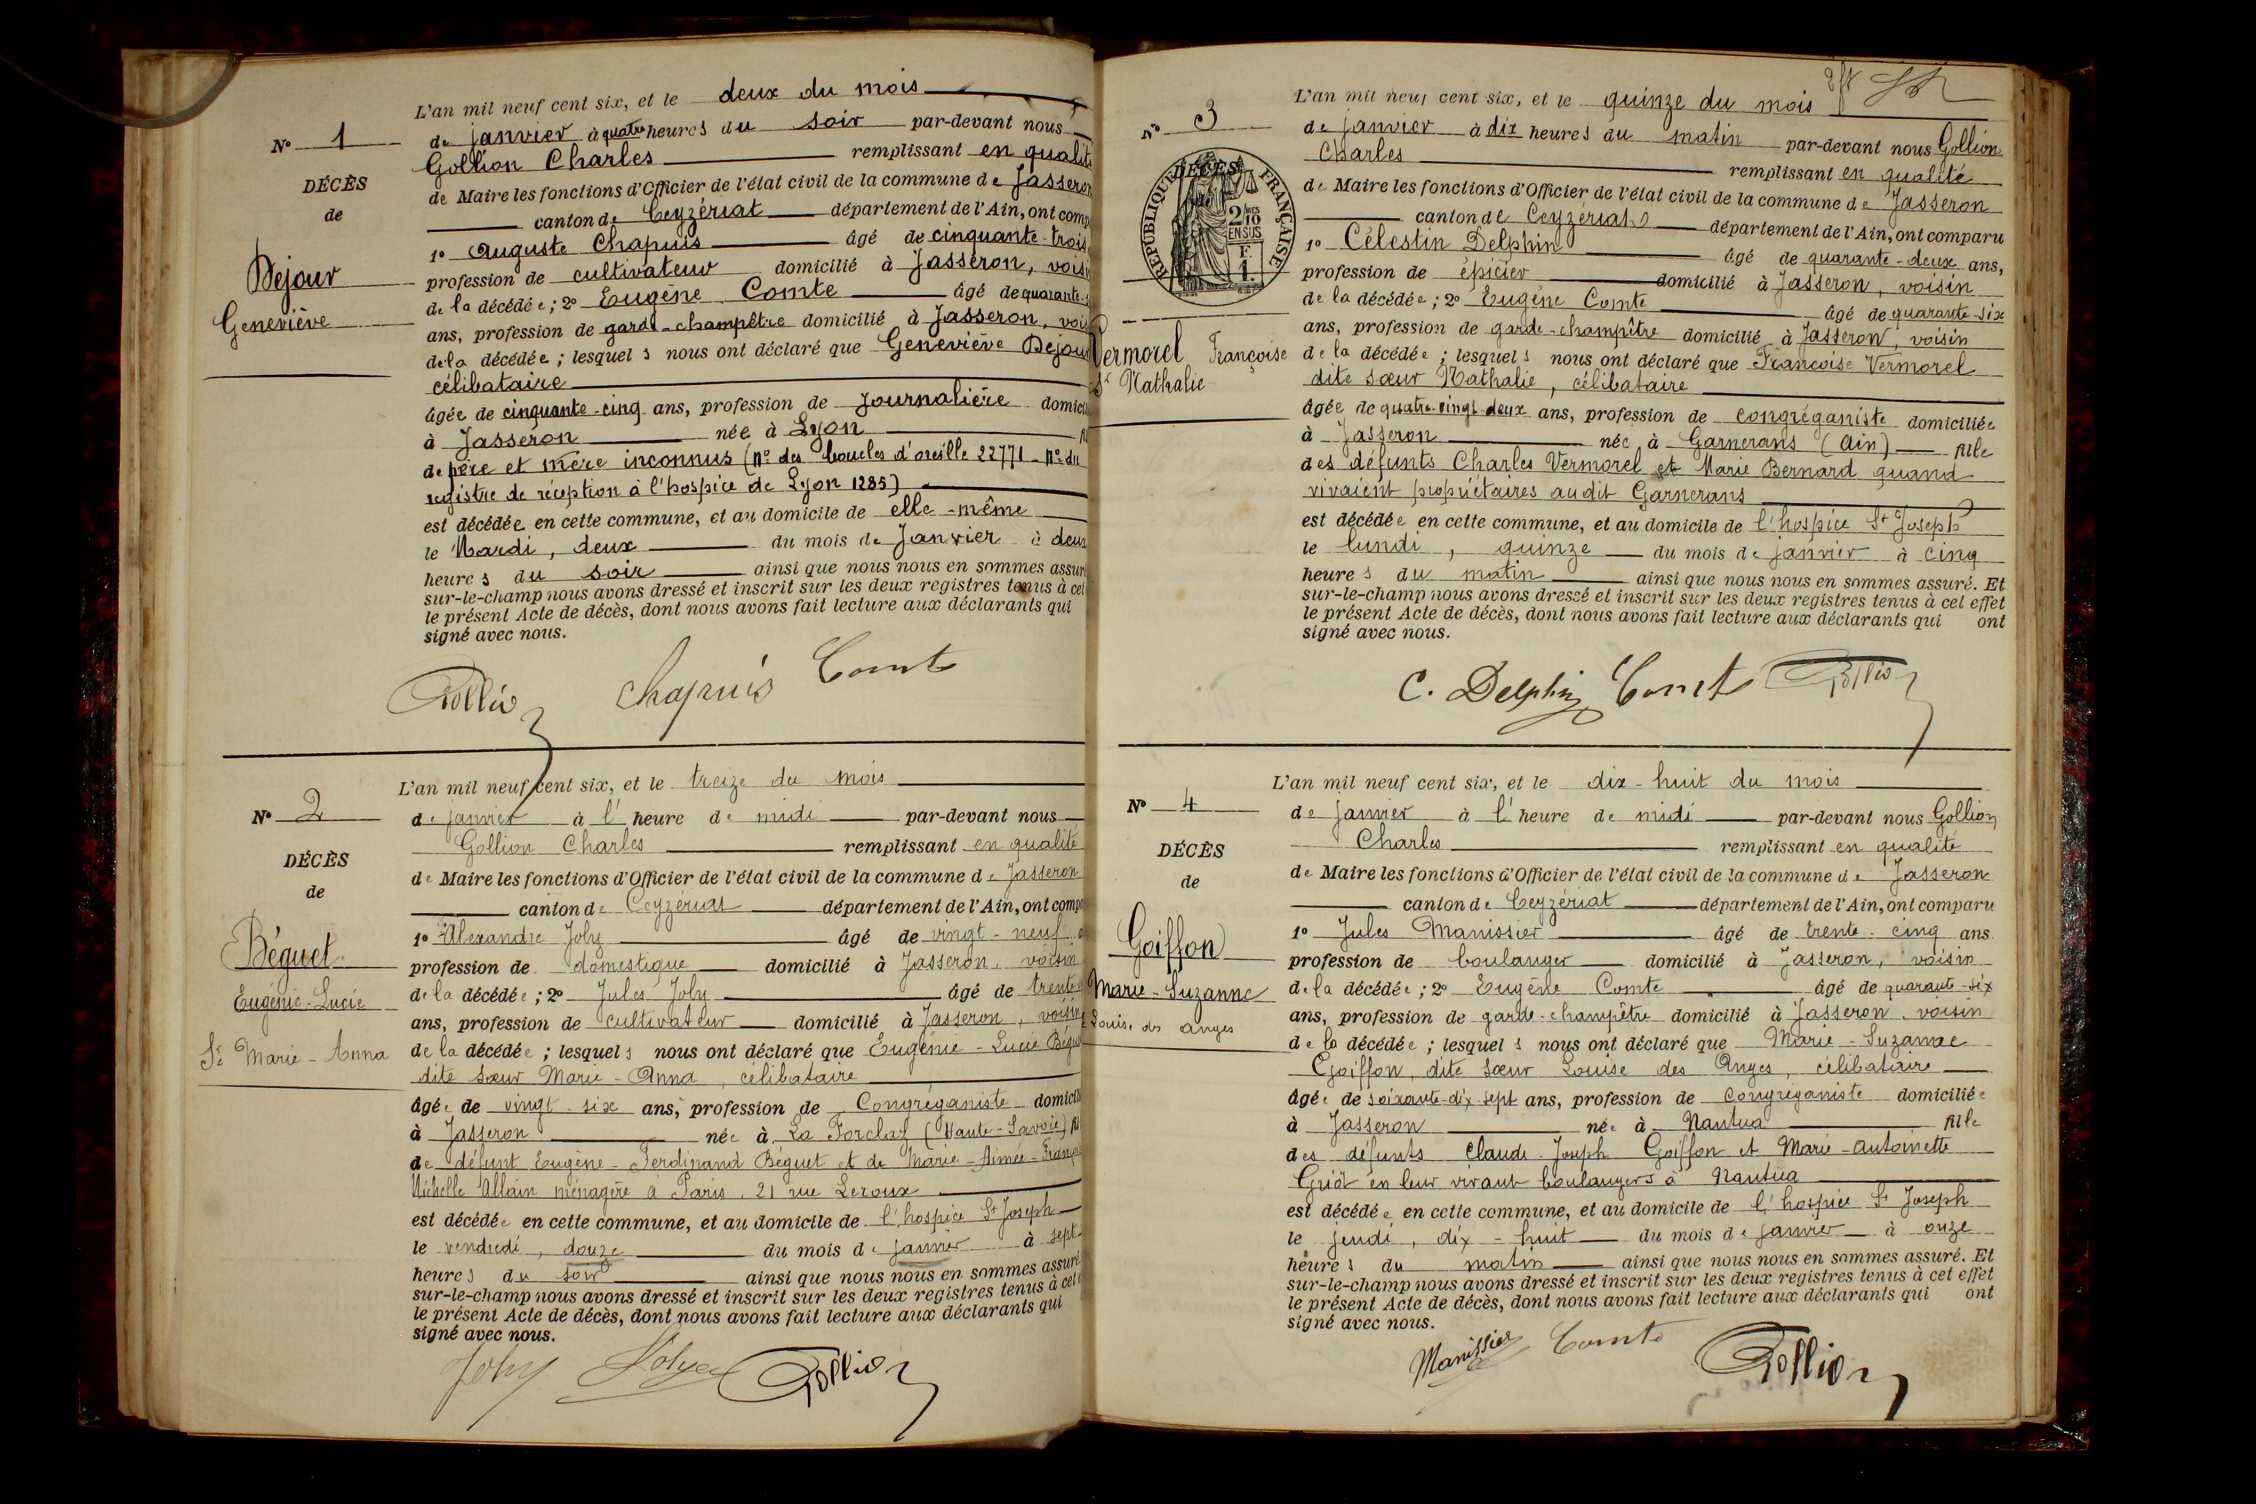 N° 1
DÉCÈS
de
Dejour
Geneviève
L'an mil neuf cent six, et le deux du mois
de janvier à quatre heures du soir par-devant nous
Gollion Charles remplissant en qualité
de Maire les fonctions d'Officier de l'état civil de la commune de Jasseron
canton de Ceyzériat département de l'Ain, ont comp
1° Auguste Chapuis âgé de cinquante-trois
profession de cultivateur domicilié à Jasseron, vois
de la décédée ; 2° Eugène Comte âgé de quarante-
ans, profession de garde-champêtre domicilié à Jasseron, vois
de la décédée ; lesquels nous ont déclaré que Geneviève Dejour
célibataire
âgée de cinquante-cinq ans, profession de Journalière domicil
à Jasseron née à Lyon fi
de père et mère inconnus (N° des boucles d'oreille 22771 - N° du
registre de réception à l'hospice de Lyon 1285)
est décédée en cette commune, et au domicile de elle-même
le Mardi, deux du mois de Janvier à deux
heures du soir ainsi que nous nous en sommes assuré
sur-le-champ nous avons dressé et inscrit sur les deux registres tenus à cet
le présent Acte de décès, dont nous avons fait lecture aux déclarants qui
signé avec nous.
Gollion Chapuis Comte
N° 2
DÉCÈS
de
Béguet
Eugénie-Lucie
Sr Marie-Anna
L'an mil neuf cent six, et le treize du mois
de janvier à l' heure de midi par-devant nous
Gollion Charles remplissant en qualité
de Maire les fonctions d'Officier de l'état civil de la commune de Jasseron
canton de Ceyzériat département de l'Ain, ont compa
1° Alexandre Joly âgé de vingt-neuf
profession de domestique domicilié à Jasseron, voisin
de la décédée ; 2° Jules Joly âgé de trente
ans, profession de cultivateur domicilié à Jasseron, voisin
de la décédée ; lesquels nous ont déclaré que Eugénie-Lucie Béguet
dite sœur Marie-Anna, célibataire
âgée de vingt-six ans, profession de Congréganiste domicili
à Jasseron née à La Forclaz (Haute-Savoie) fil
de défunt Eugène-Ferdinand Béguet et de Marie-Aimée-França
Michelle Allain ménagère à Paris, 21 rue Leroux
est décédée en cette commune, et au domicile de l'hospice St Joseph
le vendredi, douze du mois de janvier à sept
heures du soir ainsi que nous nous en sommes assuré
sur-le-champ nous avons dressé et inscrit sur les deux registres tenus à cet
le présent Acte de décès, dont nous avons fait lecture aux déclarants qui
signé avec nous.
Joly Joly Gollion
N° 3
DÉCÈS
RÉPUBLIQUE FRANÇAISE
2/10
EN SUS
F.
1.
Vermorel Françoise
Sr Nathalie
L'an mil neuf cent six, et le quinze du mois
de janvier à dix heures du matin par-devant nous Gollion
Charles remplissant en qualité
de Maire les fonctions d'Officier de l'état civil de la commune de Jasseron
canton de Ceyzériat département de l'Ain, ont comparu
1° Célestin Delphin âgé de quarante-deux ans,
profession de épicier domicilié à Jasseron, voisin
de la décédée ; 2° Eugène Comte âgé de quarante-six
ans, profession de garde-champêtre domicilié à Jasseron, voisin
de la décédée ; lesquels nous ont déclaré que Françoise Vermorel
dite sœur Nathalie, célibataire
âgée de quatre-vingt-deux ans, profession de congréganiste domiciliée
à Jasseron née à Garnerans (Ain) fille
des défunts Charles Vermorel et Marie Bernard quand
vivaient propriétaires audit Garnerans
est décédée en cette commune, et au domicile de l'hospice St Joseph
le lundi, quinze du mois de janvier à cinq
heures du matin ainsi que nous nous en sommes assuré. Et
sur-le-champ nous avons dressé et inscrit sur les deux registres tenus à cet effet
le présent Acte de décès, dont nous avons fait lecture aux déclarants qui ont
signé avec nous.
C. Delphin Comte Gollion
N° 4
DÉCÈS
de
Goiffon
Marie-Suzanne
Louise des anges
L'an mil neuf cent six, et le dix-huit du mois
de janvier à l' heure de midi par-devant nous Gollion
Charles remplissant en qualité
de Maire les fonctions d'Officier de l'état civil de la commune de Jasseron
canton de Ceyzériat département de l'Ain, ont comparu
1° Jules Manissier âgé de trente-cinq ans
profession de boulanger domicilié à Jasseron, voisin
de la décédée ; 2° Eugène Comte âgé de quarante-six
ans, profession de garde-champêtre domicilié à Jasseron, voisin
de la décédée ; lesquels nous ont déclaré que Marie-Suzanne
Goiffon, dite sœur Louise des Anges, célibataire
âgée de soixante-dix-sept ans, profession de congréganiste domiciliée
à Jasseron née à Nantua fille
des défunts Claude-Joseph Goiffon et Marie-Antoinette
Griot en leur vivant boulangers à Nantua
est décédée en cette commune, et au domicile de l'hospice St Joseph
le jeudi, dix-huit du mois de janvier à onze
heures du matin ainsi que nous nous en sommes assuré. Et
sur-le-champ nous avons dressé et inscrit sur les deux registres tenus à cet effet
le présent Acte de décès, dont nous avons fait lecture aux déclarants qui ont
signé avec nous.
Manissier Comte Gollion